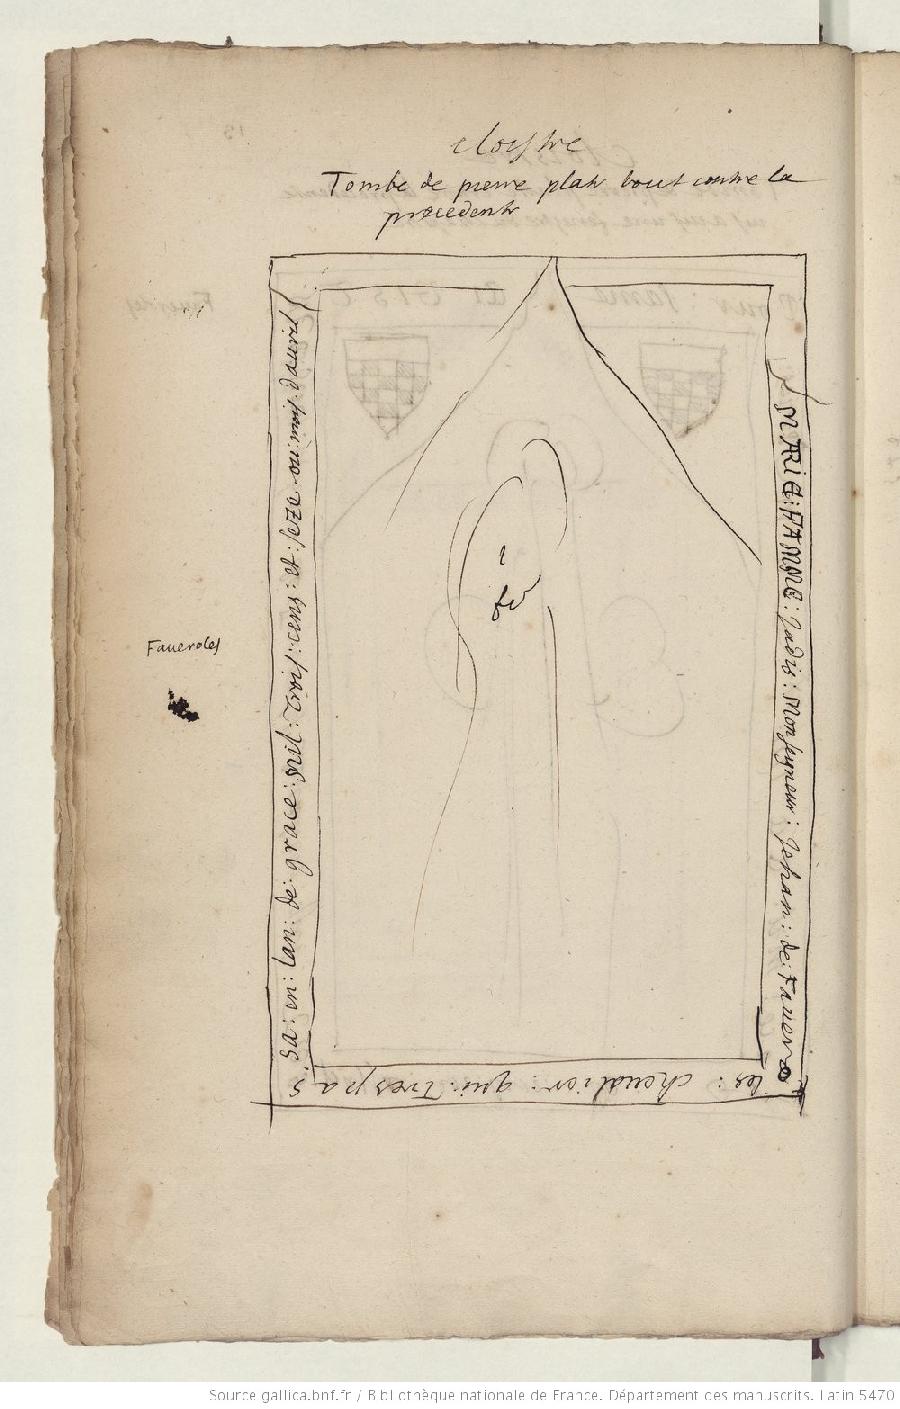 cloistre
Tombe de pierre plate bout contre la
precedente
MARIE: FAMME: Jadis: Monseigneur: Jehan: de: Fauero
les: cheualier: qui: Trespas
sa: en: lan: de: grace: mil: trois: cens: et: seze ou mois dauril
Faueroles
Source gallica.bnf.fr / Bibliothèque nationale de France. Département des manuscrits. Latin 5470